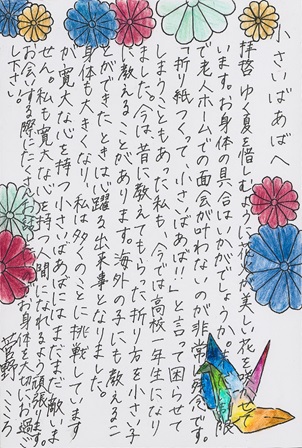 小さいばあばへ
拝啓 ゆく夏を惜しむように花が美しい花を咲かせて
います。お身体の具合はいかがでしょうか。
で老人ホームでの面会が叶わないのが非常に残念です。
「折り紙つくって、小さいばあば!!」と言って困らせて
しまうこともあった私も、今では高校一年生になり
ました。今は、昔に教えてもらった折り方を小さい子
に教えることがあります。海外の子にも教えるこ
とができたときは心躍る出来事となりました。
身体も大きくなり、私は多くのことに挑戦しています
が、寛大な心を持つ小さいばあばにはまだまだ敵いま
せん。私も寛大な心を持つ人間になれるよう頑張ります。
お会いする際にたく お身体を大切にお過ご
下さい。
菅野 こころ